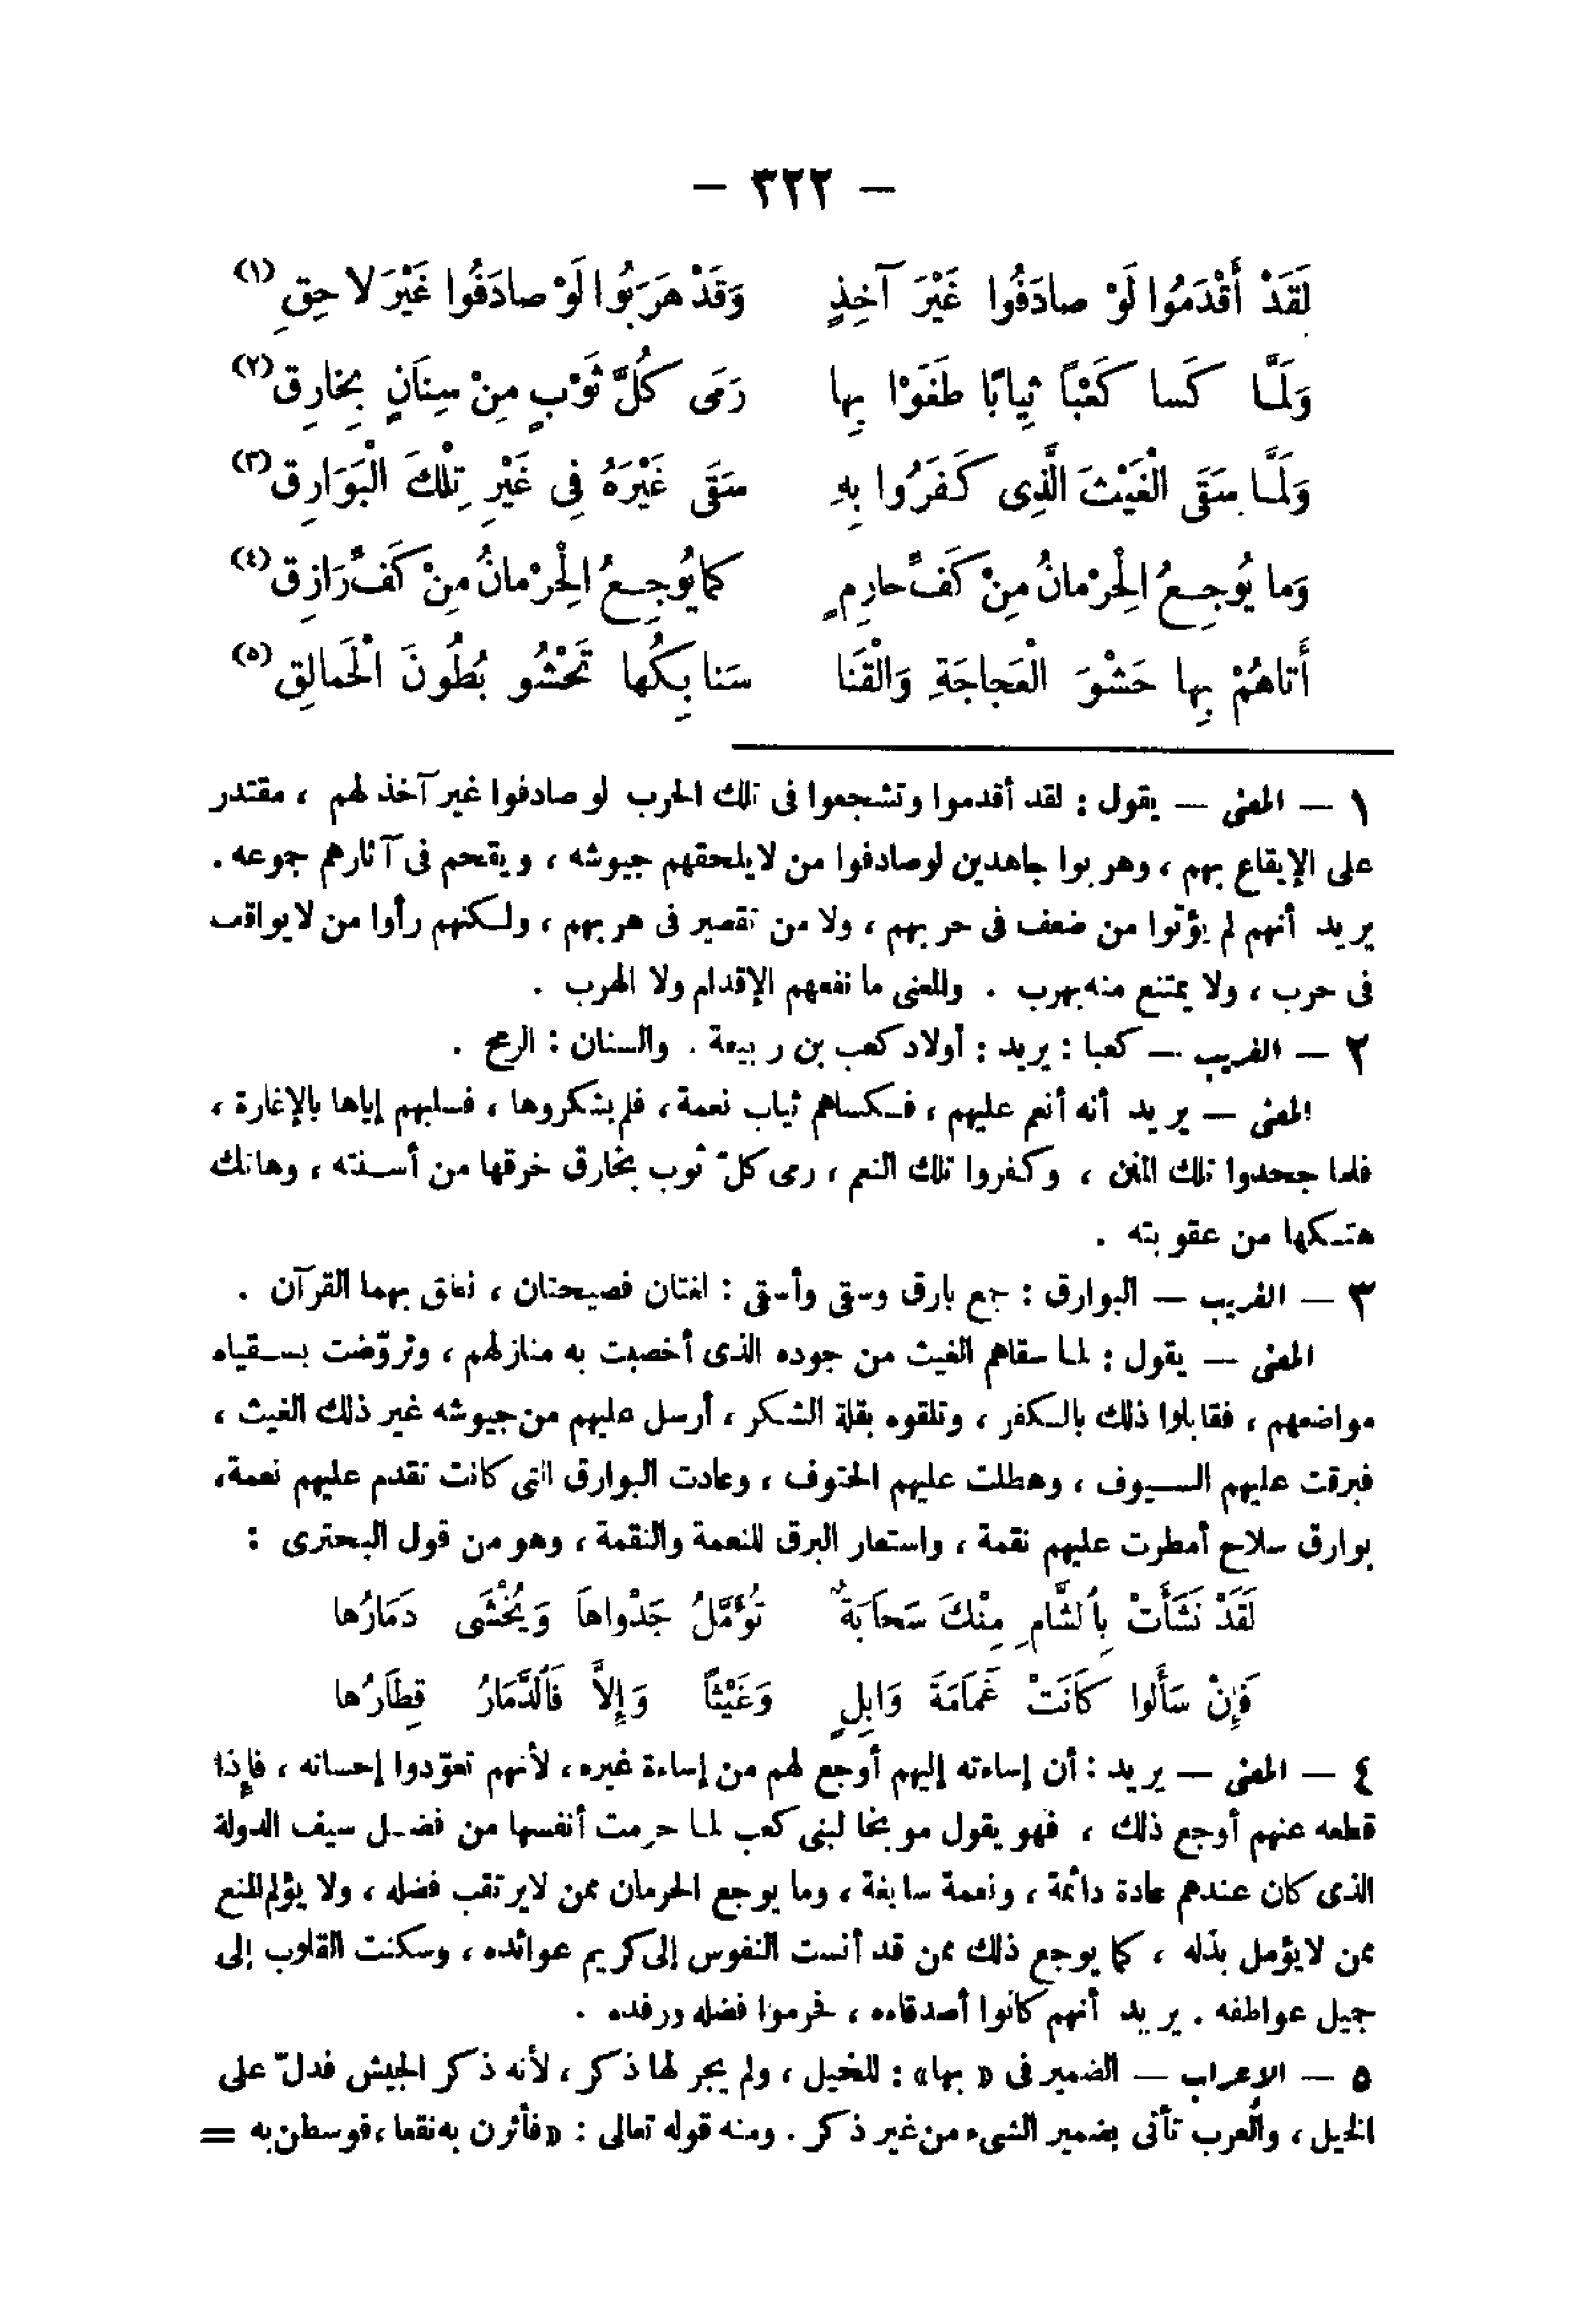 — ٣٢٢ —
لَقَدْ أَقْدَمُوا لَوْ صادَفُوا غَيْرَ آخِذٍ وَقَدْ هَرَبُوا لَوْ صادَفُوا غَيْرَ لاحِقِ (١)
وَلَمَّا كَسا كَعْبًا ثِيابًا طَغَوْا بِها رَمَى كُلَّ ثَوْبٍ مِنْ سِنَانٍ بِخارِقِ (٢)
وَلَمَّا سَقَى الْغَيْثَ الَّذِى كَفَرُوا بِهِ سَقَى غَيْرَهُ فِى غَيْرِ تِلْكَ الْبَوَارِقِ (٣)
وَما يُوجِعُ الْحِرْمانُ مِنْ كَفِّ حارِمٍ كما يُوجِعُ الْحِرْمانُ مِنْ كَفِّ رَازِقِ (٤)
أَتاهُمْ بِها حَشْوَ الْعَجاجَةِ وَالْقَنَا سَنابِكُها تَحْشُو بُطُونَ الْحَمالِقِ (٥)
١ — المعنى — يقول : لقد أقدموا وتشجعوا فى تلك الحرب لو صادفوا غير آخذ لهم ، مقتدر
على الإيقاع بهم ، وهربوا جاهدين لوصادفوا من لايلحقهم جيوشه ، ويقحم فى آثارهم جموعه .
يريد أنهم لم يؤتوا من ضعف فى حربهم ، ولا من تقصير فى هربهم ، ولكنهم رأوا من لايواقب
فى حرب ، ولا يمتنع منه بهرب . والمعنى ما نفعهم الإقدام ولا الهرب .
٢ — الغريب — كعبا : يريد : أولاد كعب بن ربيعة . والسنان : الرمح .
المعنى — يريد أنه أنعم عليهم ، فكساهم ثياب نعمة ، فلم يشكروها ، فسلبهم إياها بالإغارة ،
فلما جحدوا تلك المنن ، وكفروا تلك النعم ، رمى كلّ ثوب بخارق خرقها من أسنته ، وهاتك
هتكها من عقوبته .
٣ — الغريب — البوارق : جمع بارق وسقى وأسقى : لغتان فصيحتان ، نطق بهما القرآن .
المعنى — يقول : لما سقاهم الغيث من جوده الذى أخصبت به منازلهم ، وتروّضت بسقياه
مواضعهم ، فقابلوا ذلك بالكفر ، وتلقوه بقلة الشكر ، أرسل عليهم من جيوشه غير ذلك الغيث ،
فبرقت عليهم السيوف ، وهطلت عليهم الحتوف ، وعادت البوارق التى كانت تقدم عليهم نعمة ،
بوارق سلاح أمطرت عليهم نقمة ، واستعار البرق للنعمة والنقمة ، وهو من قول البحترى :
لَقَدْ نَشَأَتْ بِالشَّامِ مِنْكَ سَحَابَةٌ تُؤَمَّلُ جَدْواها وَيُخْشَى دَمَارُها
فَإِنْ سَأَلوا كَانَتْ غَمَامَةَ وَابِلٍ وَغَيْثًا وَإِلاَّ فَالدَّمَارُ قِطَارُها
٤ — المعنى — يريد : أن إساءته إليهم أوجع لهم من إساءة غيره ، لأنهم تعوّدوا إحسانه ، فإذا
قطعه عنهم أوجع ذلك ، فهو يقول موبخا لبنى كعب لما حرمت أنفسها من فضل سيف الدولة
الذى كان عندهم عادة دائمة ، ونعمة سابغة ، وما يوجع الحرمان ممن لايرتقب فضله ، ولا يؤلم المنع
ممن لايؤمل بذله ، كما يوجع ذلك ممن قد أنست النفوس إلى كريم عوائده ، وسكنت القلوب إلى
جميل عواطفه . يريد أنهم كانوا أصدقاءه ، فحرموا فضله ورفده .
٥ — الإعراب — الضمير فى « بها» : للخيل ، ولم يجر لها ذكر ، لأنه ذكر الجيش فدلّ على
الخيل ، والعرب تأتى بضمير الشىء من غير ذكر . ومنه قوله تعالى : «فأثرن به نقعا ، فوسطن به =